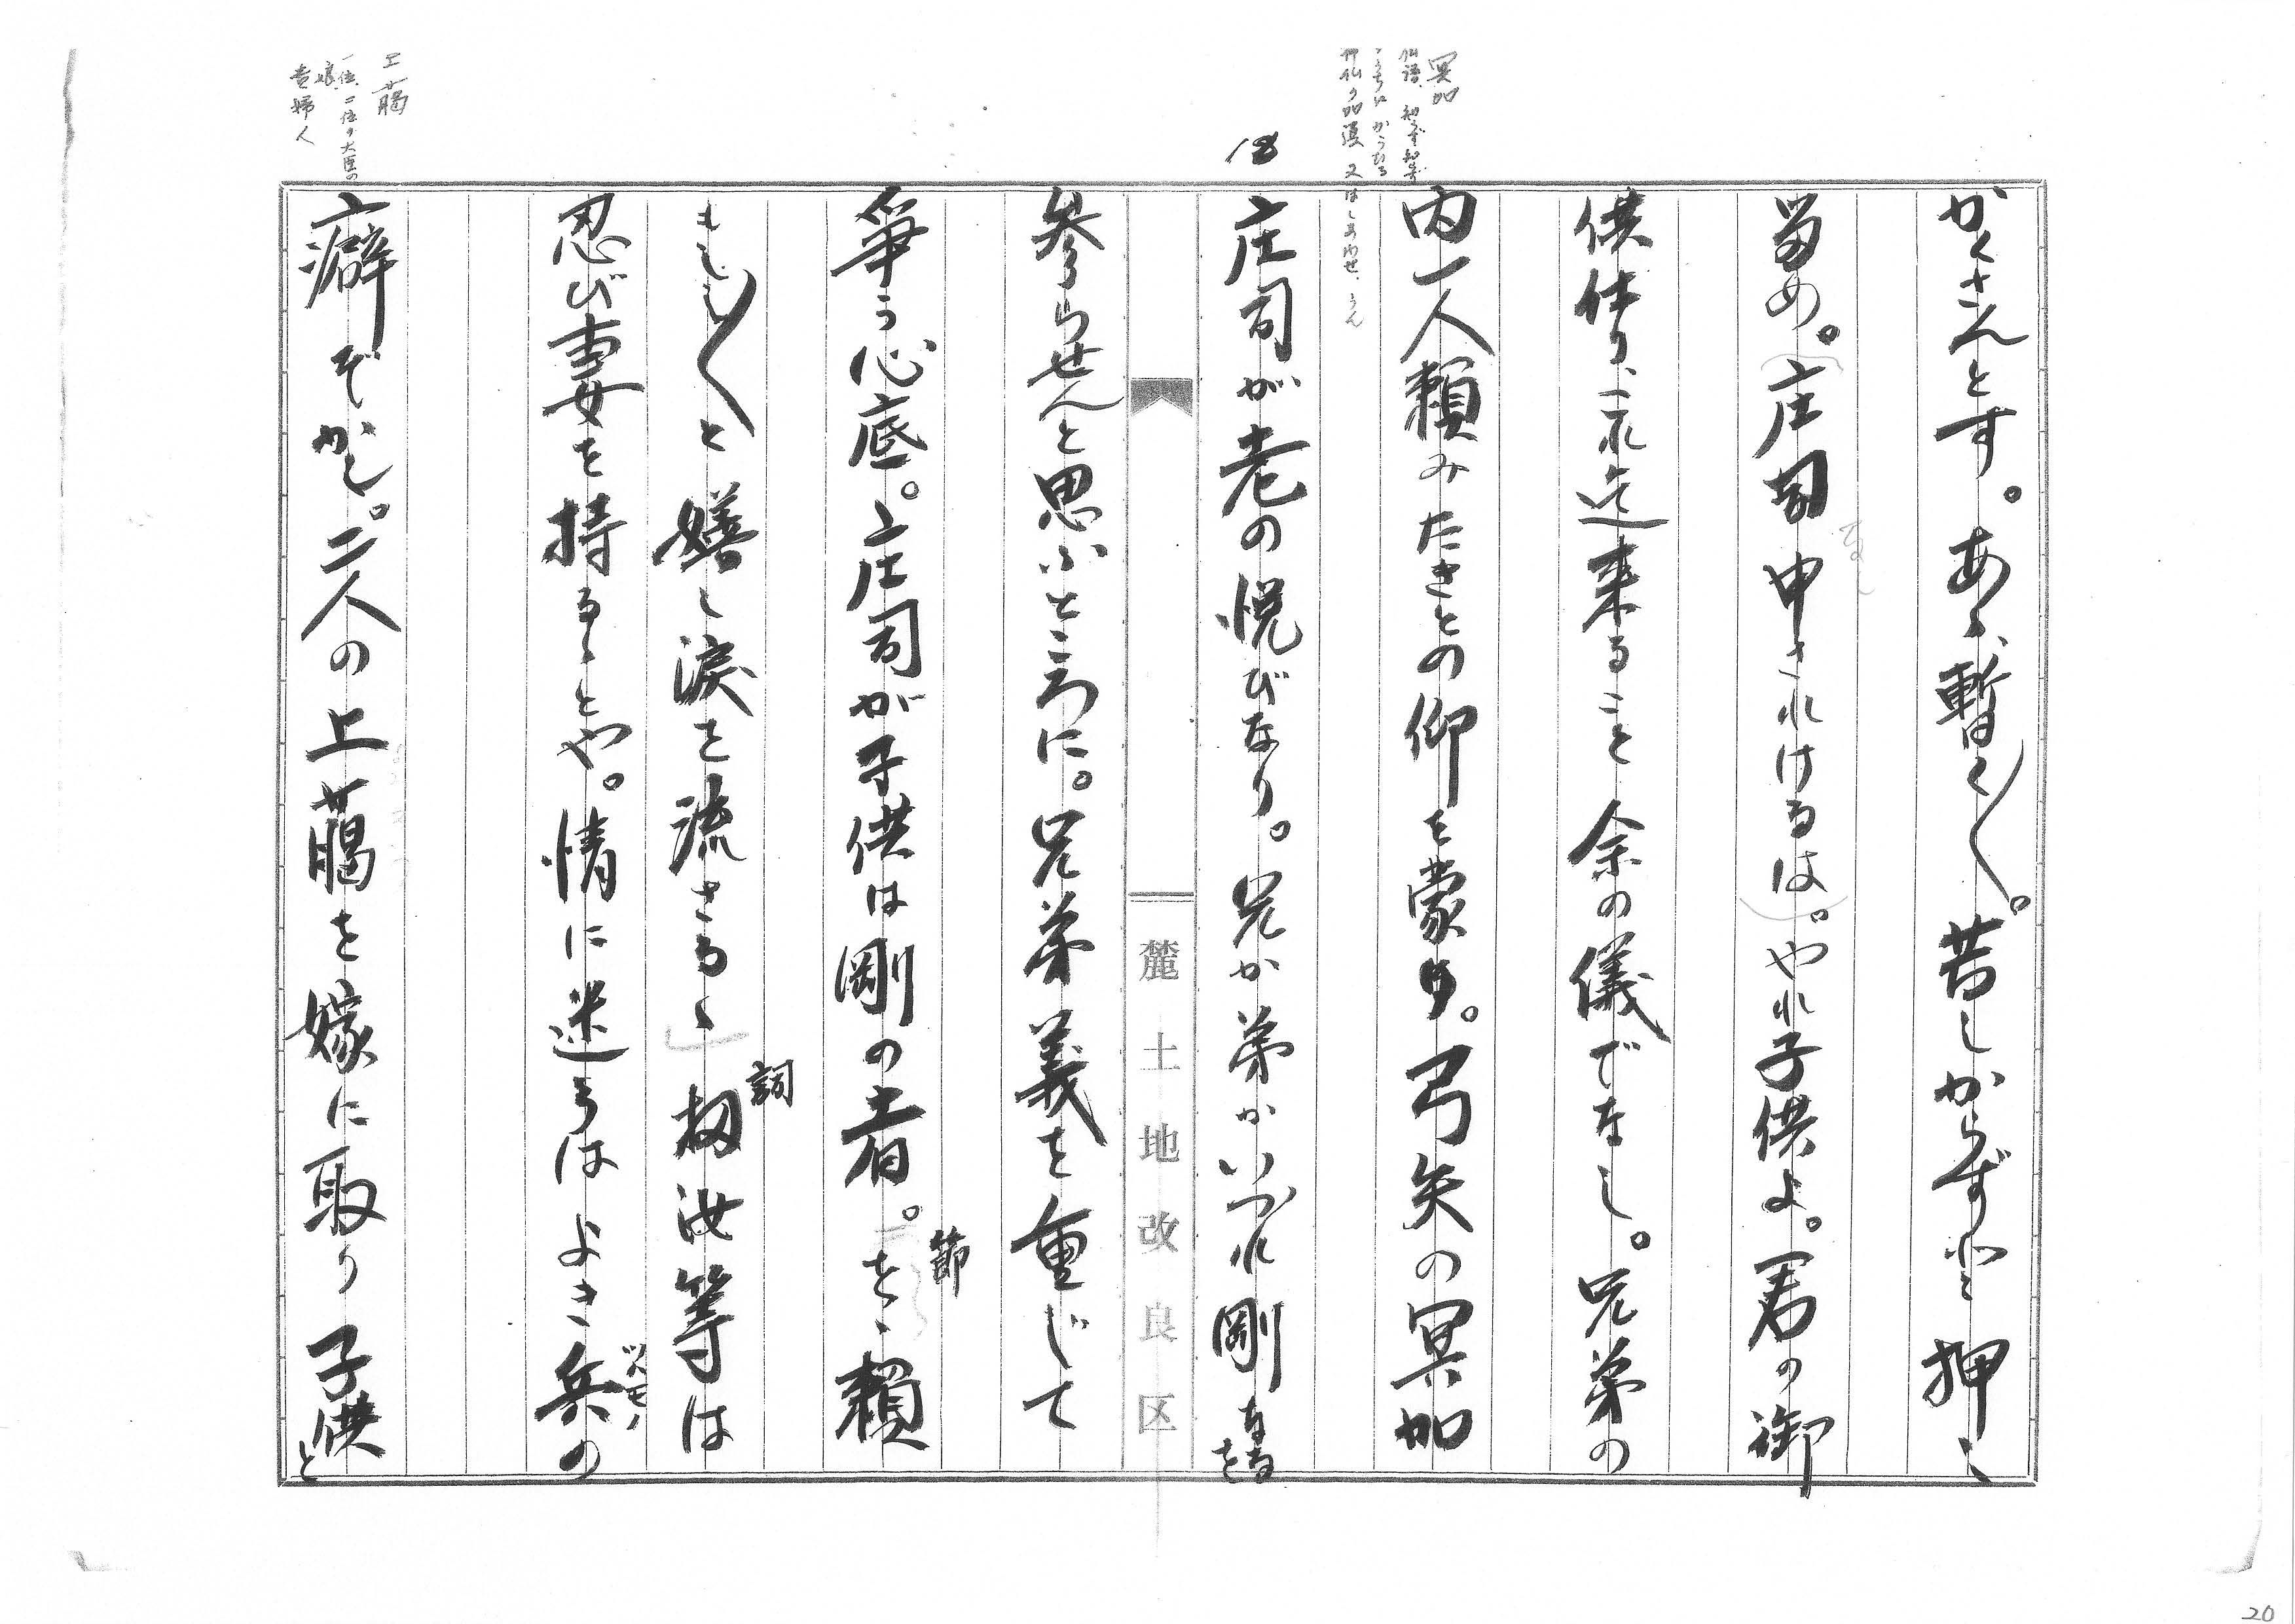 冥加
仏語、知らず知らず
こうちにかうむる
神仏の加護又はしあわせ、うん
かくさんとす。あゝ暫く〳〵。苦しからずと押し
留め。庄司申されけるは。やれ子供よ。君の御
供仕り、これ迄来ること余の儀でなし。兄弟の
内一人頼みたきとの仰を蒙り。弓矢の冥加
18
庄司が老の悦びなり。兄か弟かいづれ剛なるを
麓土地改良区
参らせんと思ふところに。兄弟義を重じて
争う心底。庄司が子供は剛の者。
節
をゝ頼
もし〳〵と嬉し涙を流さるゝ
詞
扨汝等は
忍び妻を持るゝとや。情に迷うはよき兵の
ツハモノ
上﨟
一位、二位の大臣の
娘、
貴婦人
癖ぞかし。二人の上﨟を嫁に取り子供と
20